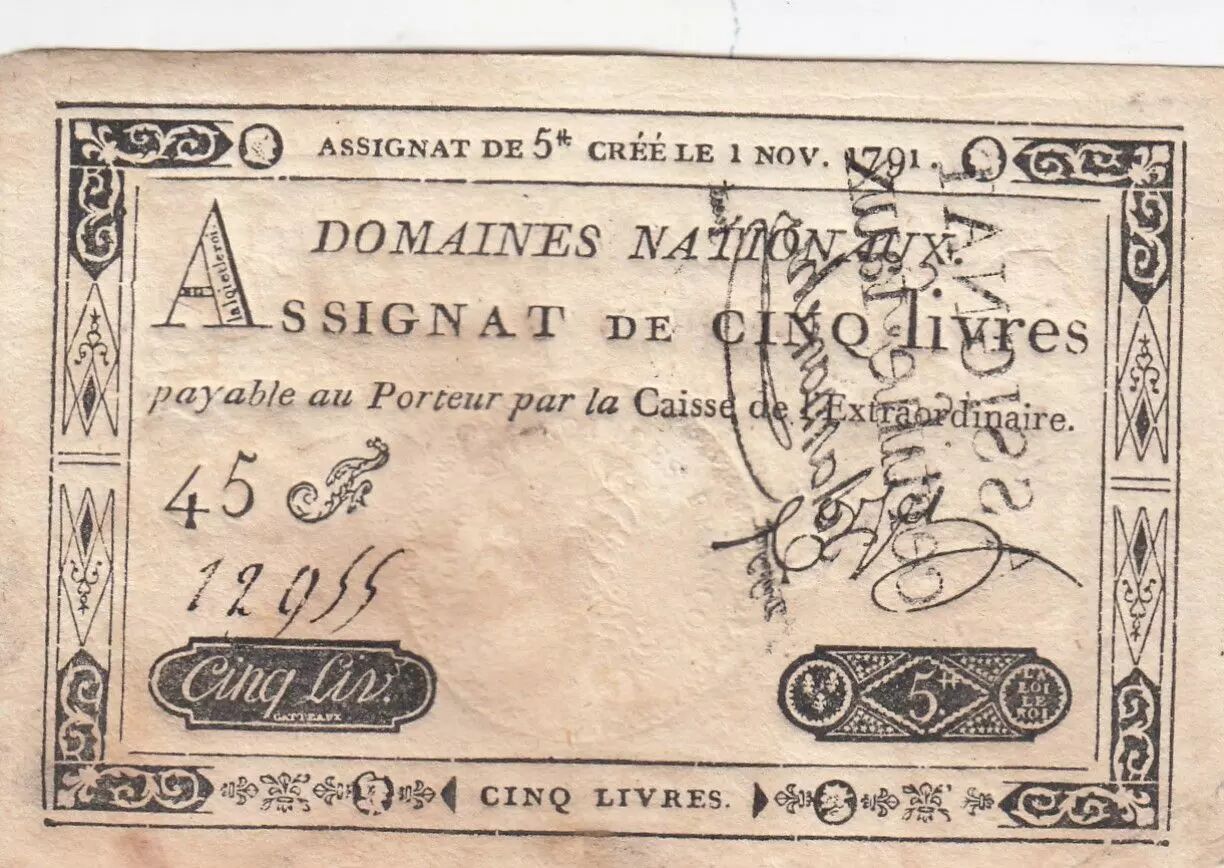 ASSIGNAT DE 5ᵗᵗ CRÉÉ LE 1 NOV. 1791.
DOMAINES NATIONAUX.
la loi et le roi.
ASSIGNAT DE CINQ livres
payable au Porteur par la Caisse de l'Extraordinaire.
45
12955
Cinq Liv.
GATTEAUX
5ᵗᵗ
LA LOI LE ROI
CINQ LIVRES.
ASSIGNAT